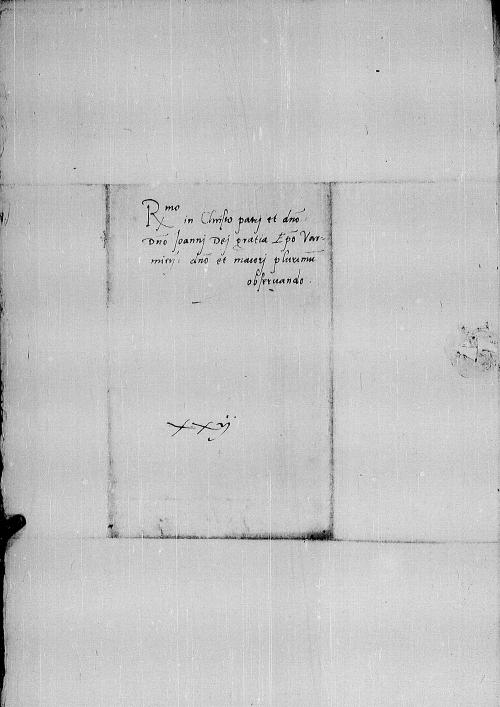 Rmo in Christo patrj et dno
Dno Joannj Dej gratia Epo Var-
mien: dno et maiorj plurimu
obseruando.
xxij